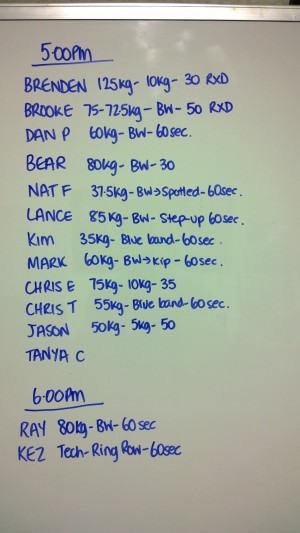 5:00PM
BRENDEN 125kg - 10kg - 30 RXD
BROOKE 75-72.5kg - BW - 50 RXD
DAN P 60kg - BW - 60sec.
BEAR 80kg - BW - 30
NAT F 37.5kg - BW→Spotted - 60sec.
LANCE 85kg - BW - Step-up 60sec.
Kim 35kg - Blue band - 60sec.
MARK 60kg - BW→Kip - 60sec.
CHRIS E 75kg - 10kg - 35
CHRIS T 55kg - Blue band - 60sec.
JASON 50kg - 5kg - 50
TANYA C
6:00PM
RAY 80kg - BW - 60sec
KEZ Tech - Ring Row - 60sec